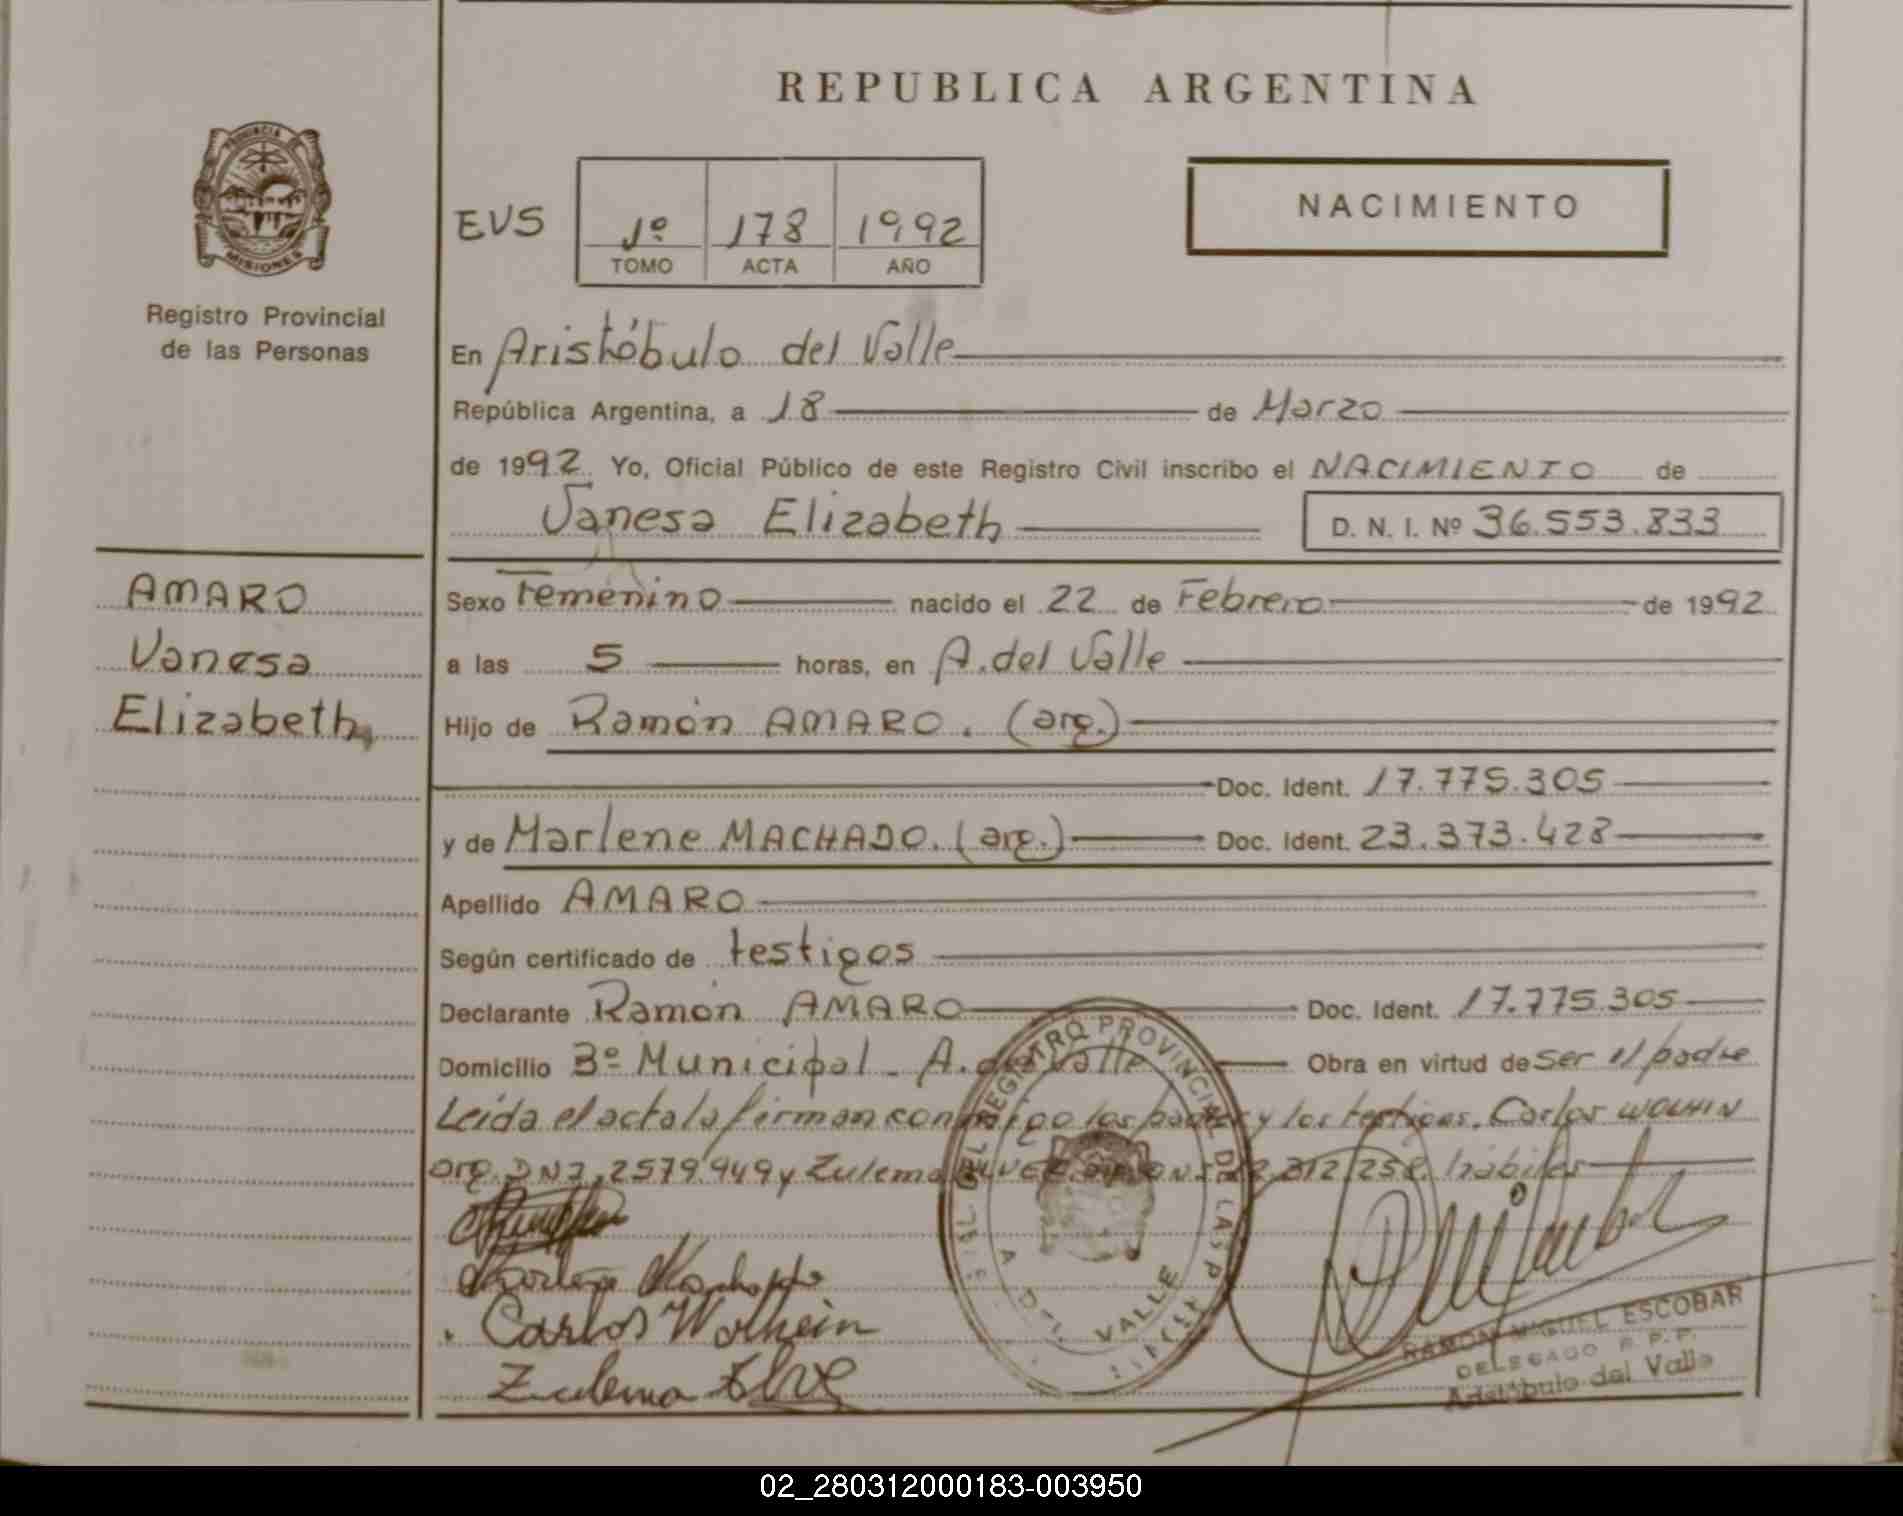 REPUBLICA ARGENTINA
PROVINCIA DE
MISIONES
Registro Provincial
de las Personas
EVS
1º 178 1992
TOMO ACTA AÑO
NACIMIENTO
En Aristóbulo del Valle
República Argentina, a 18 de Marzo
de 1992. Yo, Oficial Público de este Registro Civil inscribo el NACIMIENTO de
Vanesa Elizabeth D. N. I. Nº 36.553.833
AMARO
Vanesa
Elizabeth
Sexo Femenino nacido el 22 de Febrero de 1992
a las 5 horas, en A. del Valle
Hijo de Ramón AMARO. (arg.)
Doc. Ident. 17.775.305
y de Marlene MACHADO. (arg.) Doc. Ident. 23.373.428
Apellido AMARO
Según certificado de testigos
Declarante Ramón AMARO Doc. Ident. 17.775.305
Domicilio Bº Municipal - A. del Valle Obra en virtud de ser el padre
Leída el acta la firman conmigo los padres y los testigos. Carlos WOLHIN
arg. DNI 2579.949 y Zulema habiles
Carlos Wolhein
Zulema
REGISTRO PROVINCIAL DE LAS P
A. DEL VALLE
RAMON MIGUEL ESCOBAR
DELEGADO R. P. P.
Aristóbulo del Valle
02_280312000183-003950